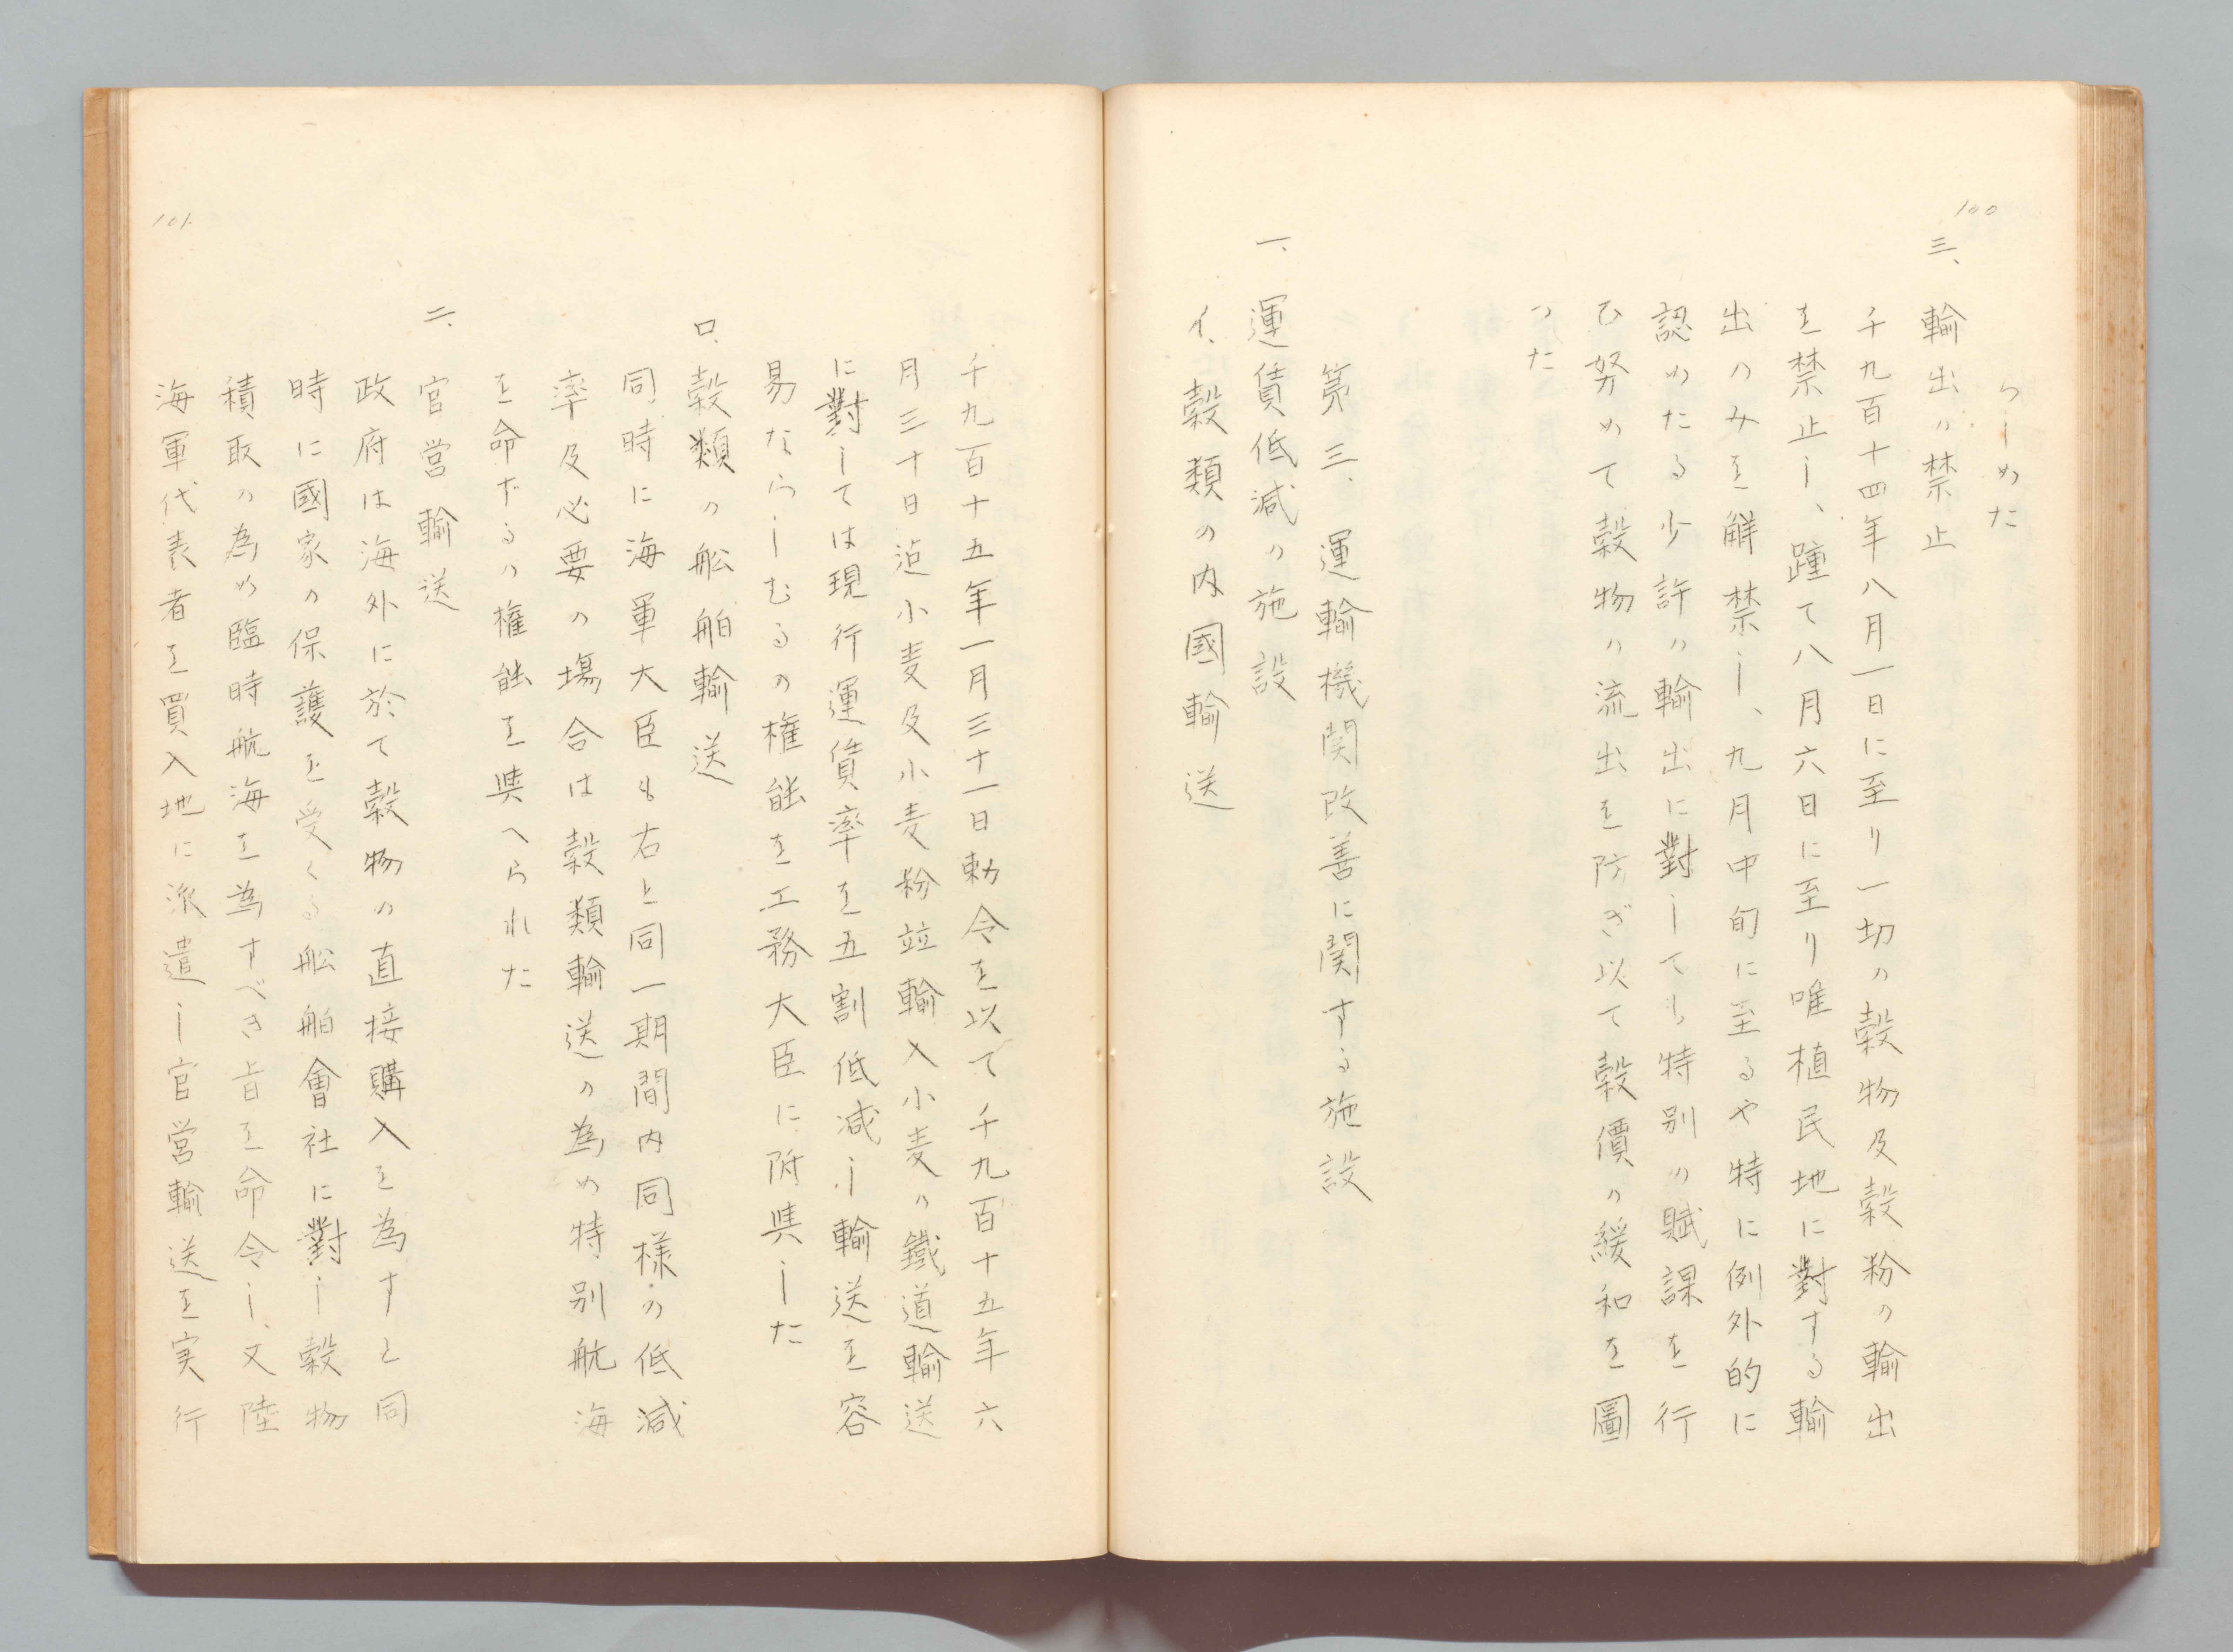 100
らしめた
三、輸出の禁止
千九百十四年八月一日に至り一切の穀物及穀粉の輸出
を禁止し、踵て八月六日に至り唯植民地に對する輸
出のみを解禁し、九月中旬に至るや特に例外的に
認めたる少許の輸出に對しても特別の賦課を行
ひ努めて穀物の流出を防ぎ以て穀價の緩和を圖
つた
第三、運輸機関改善に関する施設
一、運賃低減の施設
イ、穀類の内國輸送
千九百十五年一月三十一日勅令を以て千九百十五年六
月三十日迠小麦及小麦粉竝輸入小麦の鐵道輸送
に對しては現行運賃率を五割低減し輸送を容
易ならしむるの権能を工務大臣に附與した
ロ、穀類の舩舶輸送
同時に海軍大臣も右と同一期間内同様の低減
率及必要の場合は穀類輸送の為め特別航海
を命ずるの権能を與へられた
二、官営輸送
政府は海外に於て穀物の直接購入を為すと同
時に國家の保護を受くる舩舶會社に對し穀物
積取の為め臨時航海を為すべき旨を命令し、又陸
海軍代表者を買入地に派遣し官営輸送を実行
101